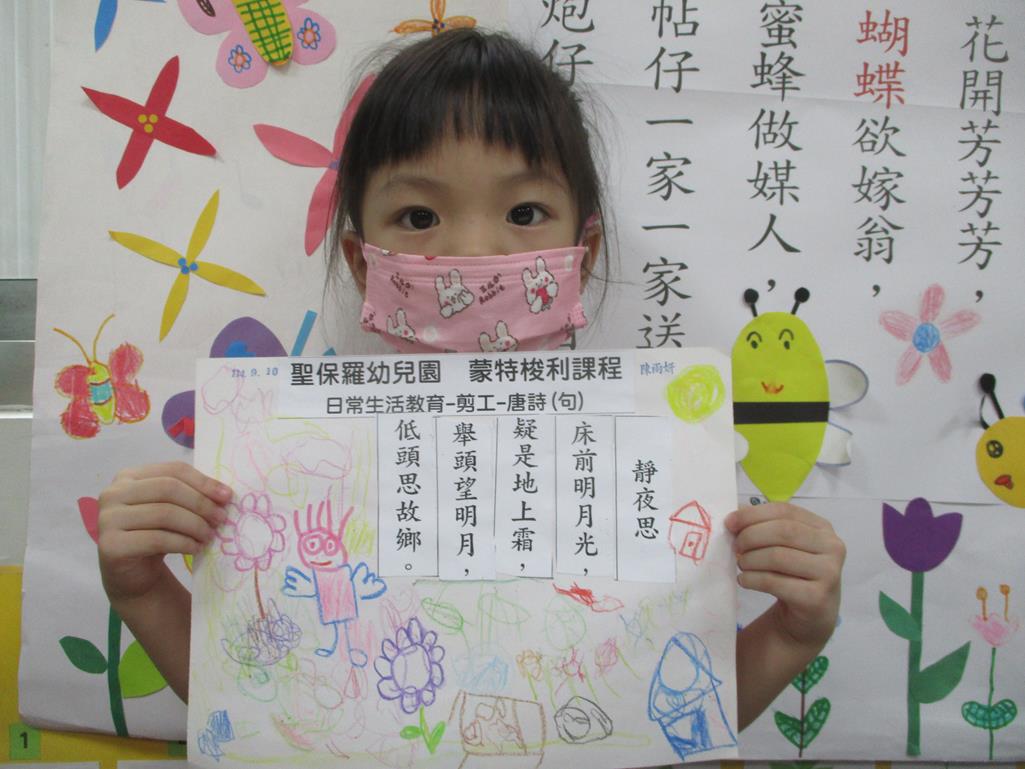 花開芳芳芳，
蝴蝶欲嫁翁，
蜜蜂做媒人，
帖仔一家一家送
炮仔
111.9.10
聖保羅幼兒園　蒙特梭利課程
陳雨妍
日常生活教育-剪工-唐詩(句)
靜夜思
床前明月光，
疑是地上霜，
舉頭望明月，
低頭思故鄉。
1